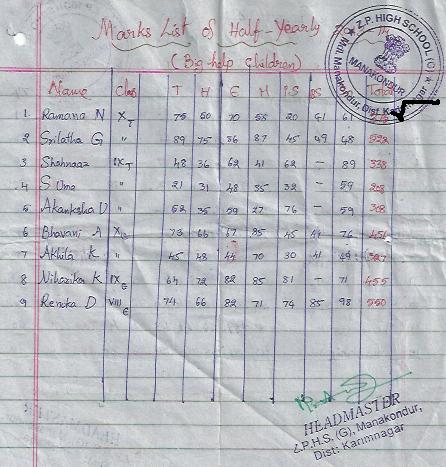 Marks List of Half-Yearly
(Big-help Children)
Z.P. HIGH SCHOOL (G)
MANAKONDUR
Mdl. Manakondur, Dist. Karimnagar
Name Class T H E M P.S BS Total
1 Ramana N X T 75 50 70 58 20 41 61
2 Srilatha G " 89 75 86 87 45 49 48
3 Shahnaaz IX T 48 36 62 41 62 – 89 338
4 S Uma " 21 31 48 35 32 – 59
5 Akanksha D " 52 35 59 27 76 – 59 308
6 Bhavani A X E 73 66 67 85 45 44 76 456
7 Akhila K " 45 48 44 70 30 41 49 327
8 Niharika K IX E 64 72 82 85 81 – 71 455
9 Renuka D VIII E 74 66 82 71 74 85 98 550
HEADMASTER
Z.P.H.S. (G), Manakondur,
Dist: Karimnagar